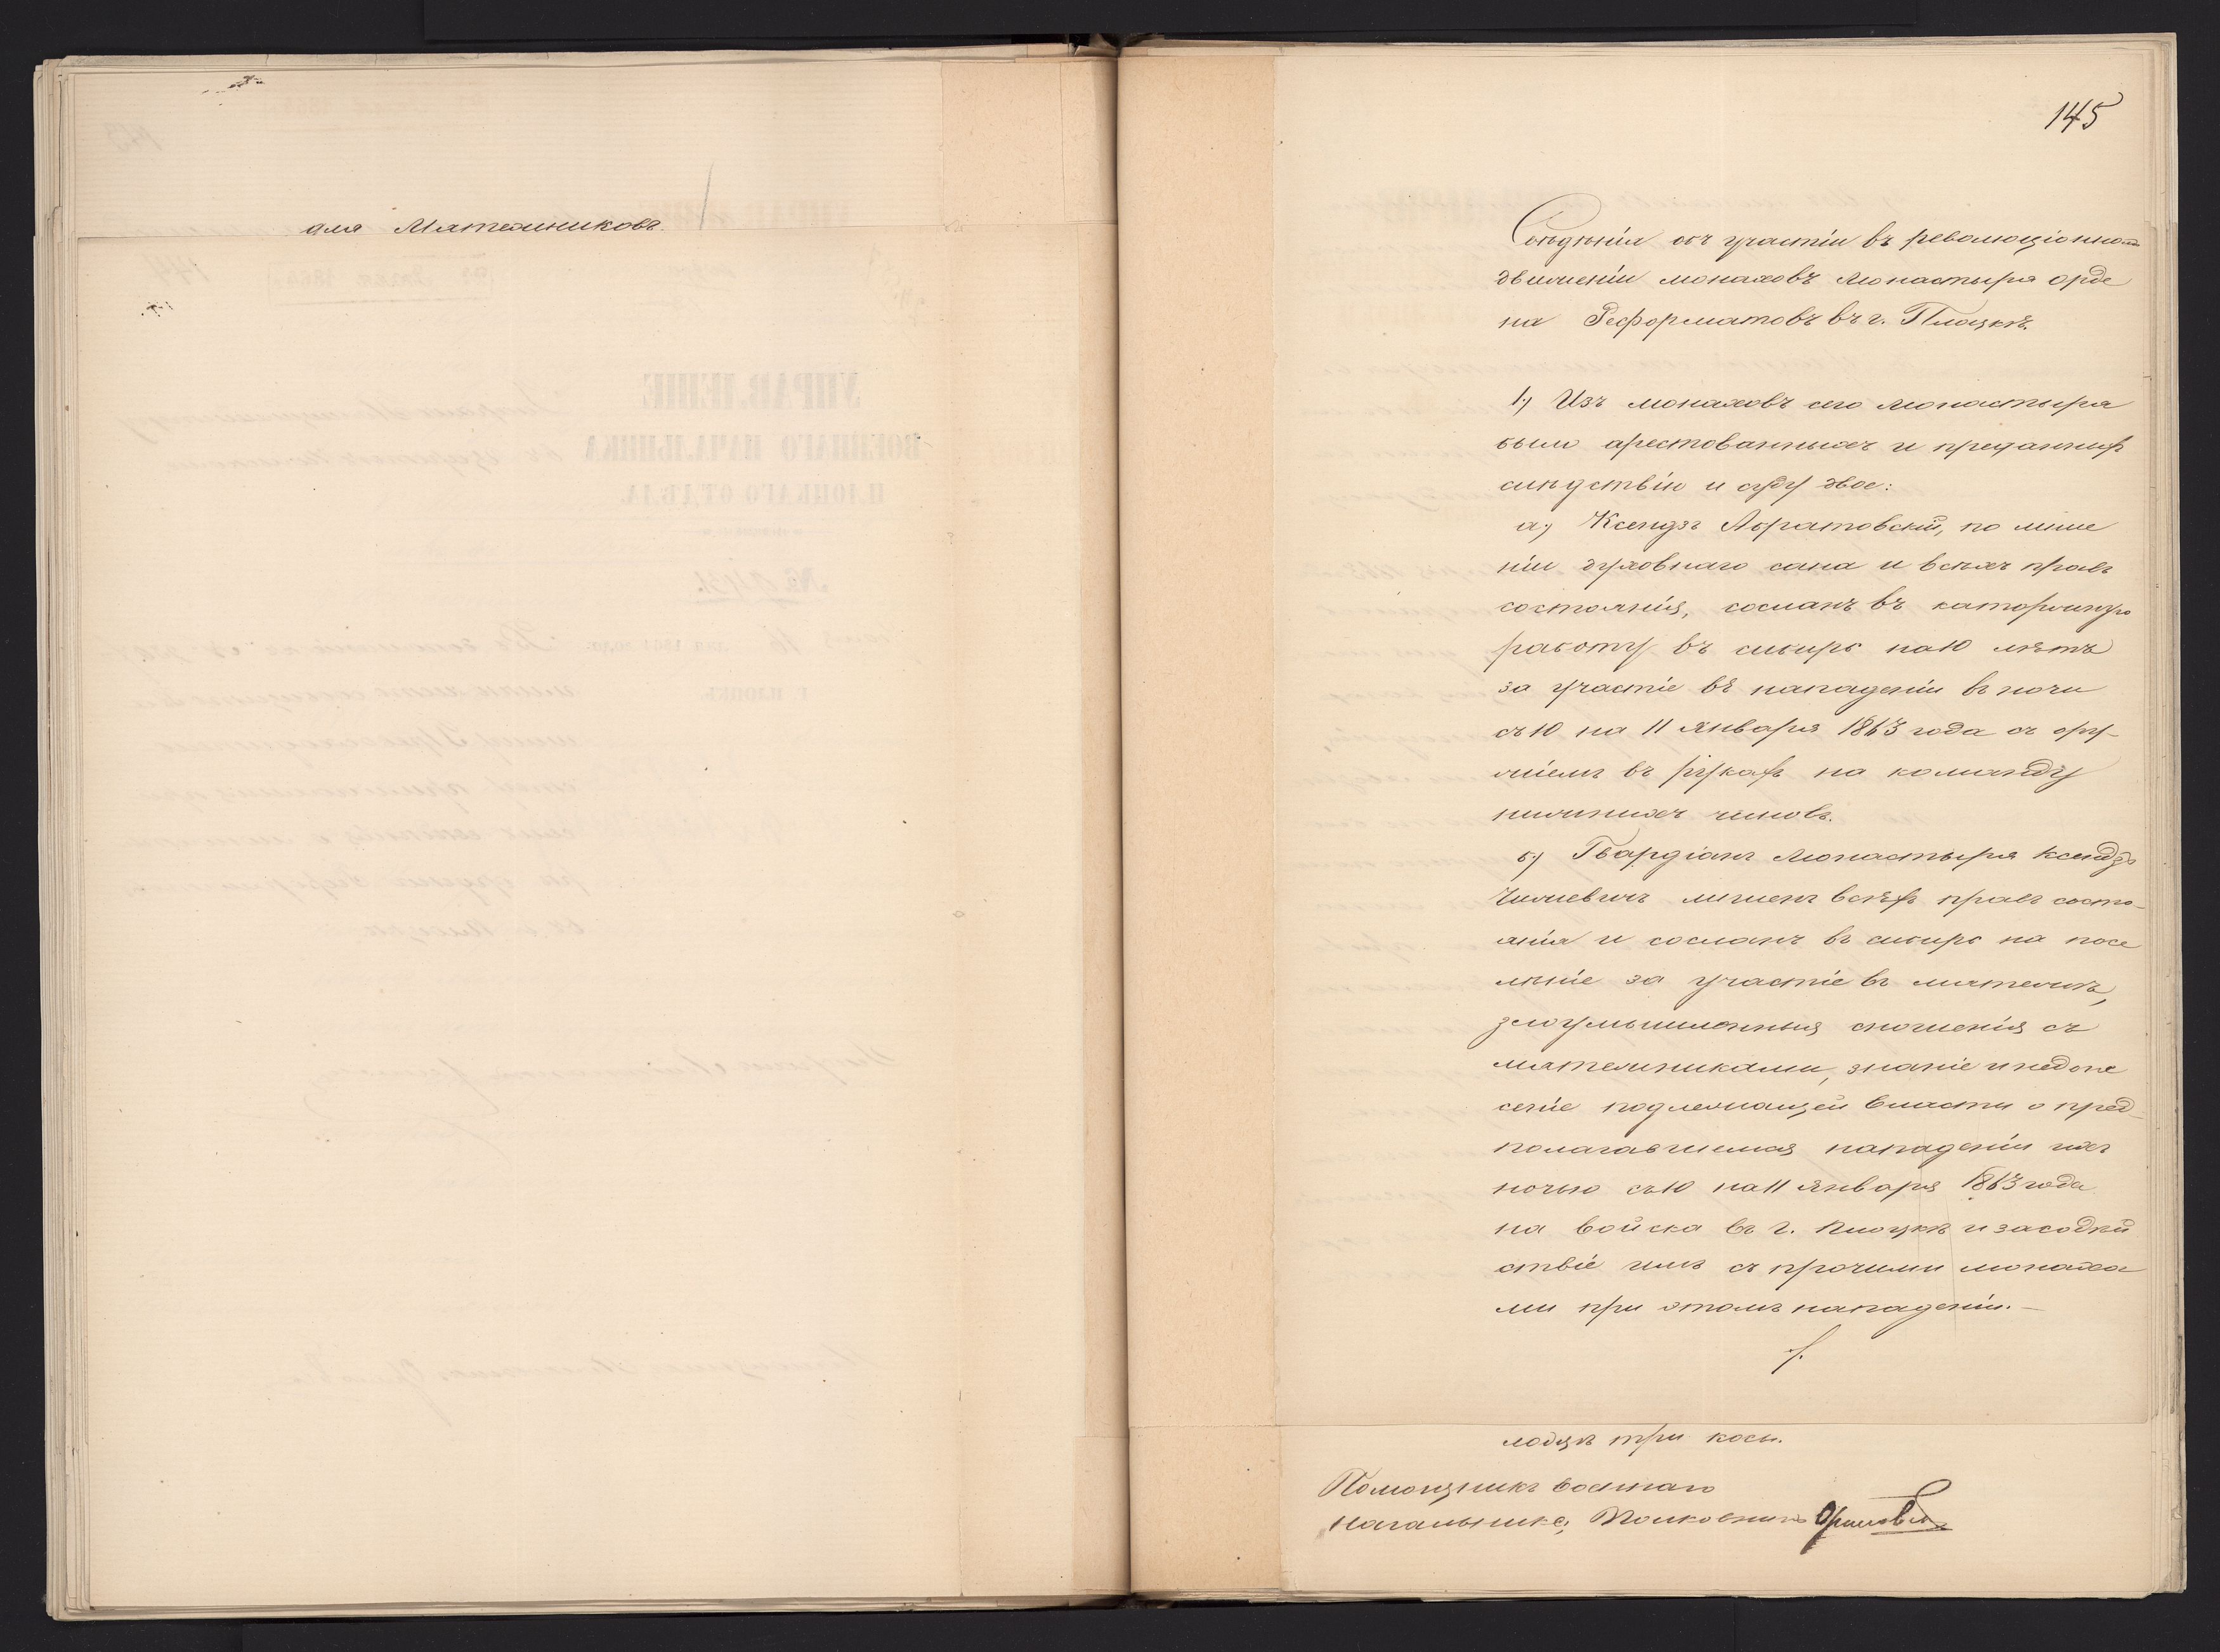 для Мятежниковъ.
145
Свѣдѣнія объ участіи въ революціонномъ
движеніи монаховъ Монастыря орде
на Реформатовъ въ г. Плоцкѣ.
1) Изъ монаховъ сего Монастыря
было арестованныхъ и преданныхъ
слѣдствію и суду двое:
а) Ксендзъ Абратовскій, по лише
ніи духовнаго сана и всѣхъ правъ
состоянія, сосланъ въ каторжную
работу въ сибирь на 10 лѣтъ
за участіе въ нападеніи въ ночи
съ 10 на 11 Января 1863 года съ ору-
жіемъ въ рукахъ на команду
нижнихъ чиновъ.
б) Гвардіанъ Монастыря Ксендзъ
лишенъ всѣхъ правъ состо-
янія и сосланъ въ сибирь на посе
леніе за участіе въ мятежѣ,
злоумышленныя сношенія съ
мятежниками, знаніе и недоне
сеніе подлежащей власти о пред-
полагавшемся нападеніи ихъ
ночью съ 10 на 11 Января 1863 года
на войска въ г. Плоцкѣ и за содѣй
ствіе имъ съ прочими монаха
ми при этомъ нападеніи. —
три косы.
Помощникъ Военнаго
Начальника, Полковникъ
УПРАВЛЕНІЕ
ВОЕННАГО НАЧАЛЬНИКА
ПЛОЦКАГО ОТДѢЛА